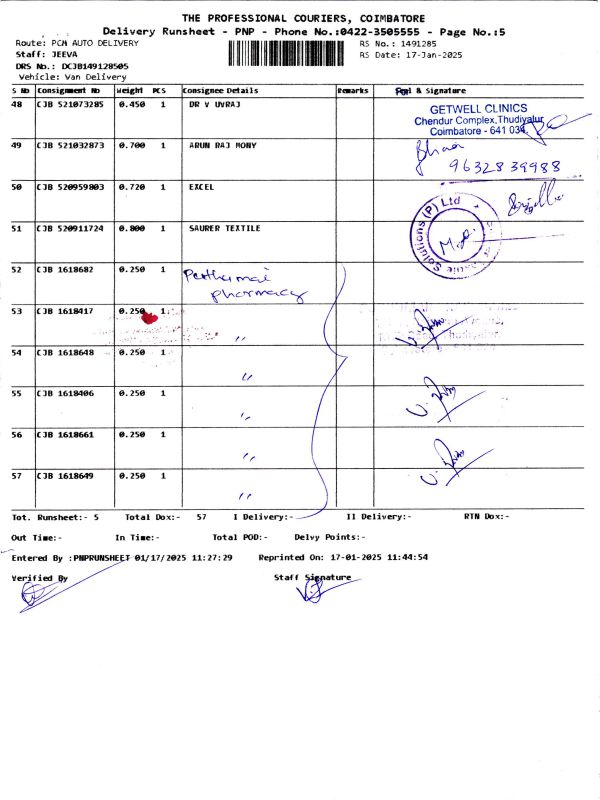 THE PROFESSIONAL COURIERS, COIMBATORE
Delivery Runsheet - PNP - Phone No.:0422-3505555 - Page No.:5
Route: PCM AUTO DELIVERY
RS No.: 1491285
Staff: JEEVA
RS Date: 17-Jan-2025
DRS No.: DCJB149128505
Vehicle: Van Delivery
S No Consignment No Weight PCS Consignee Details Remarks & Signature
48 CJB 521073285 0.450 1 DR V UVRAJ
GETWELL CLINICS
Chendur Complex,Thudiyalur
Coimbatore - 641 034.
49 CJB 521032873 0.700 1 ARUN RAJ MONY
9632839988
50 CJB 520959803 0.720 1 EXCEL
51 CJB 520911724 0.800 1 SAURER TEXTILE
Solutions (P) Ltd
52 CJB 1618682 0.250 1
pharmacy
53 CJB 1618417 0.250 1 〃
54 CJB 1618648 0.250 1 〃
55 CJB 1618406 0.250 1 〃
56 CJB 1618661 0.250 1 〃
57 CJB 1618649 0.250 1 〃
Tot. Runsheet:- 5 Total Dox:- 57 I Delivery:- II Delivery:- RTN Dox:-
Out Time:- In Time:- Total POD:- Delvy Points:-
Entered By :PNPRUNSHEET 01/17/2025 11:27:29 Reprinted On: 17-01-2025 11:44:54
Verified By Staff Signature